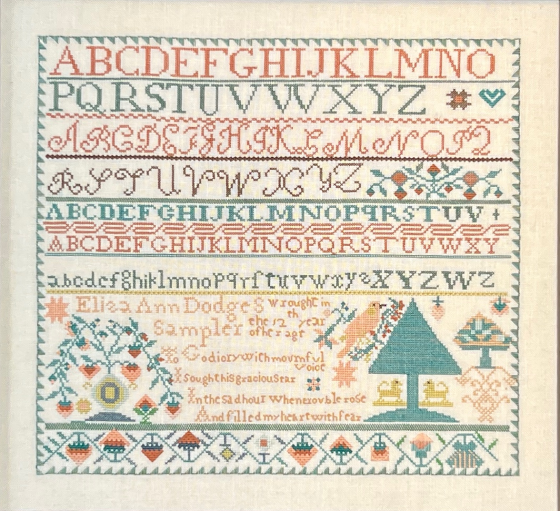 ABCDEFGHIJKLMNO
PQRSTUVWXYZ
ABCDEFGHIKLMNOPQ
RSTUVWXYZ
ABCDEFGHIJKLMNOPQRSTUV
ABCDEFGHIJKLMNOPQRSTUVWXY
abcdefghiklmnopqrſtuvwxyzXYZWZ
Eliza Ann Dodges wrought in
Sampler the 12th year
of her age
God i cry with mournful
voice
I sought his gracious ear
In the sad hour when trouble rose
And filled my heart with fear